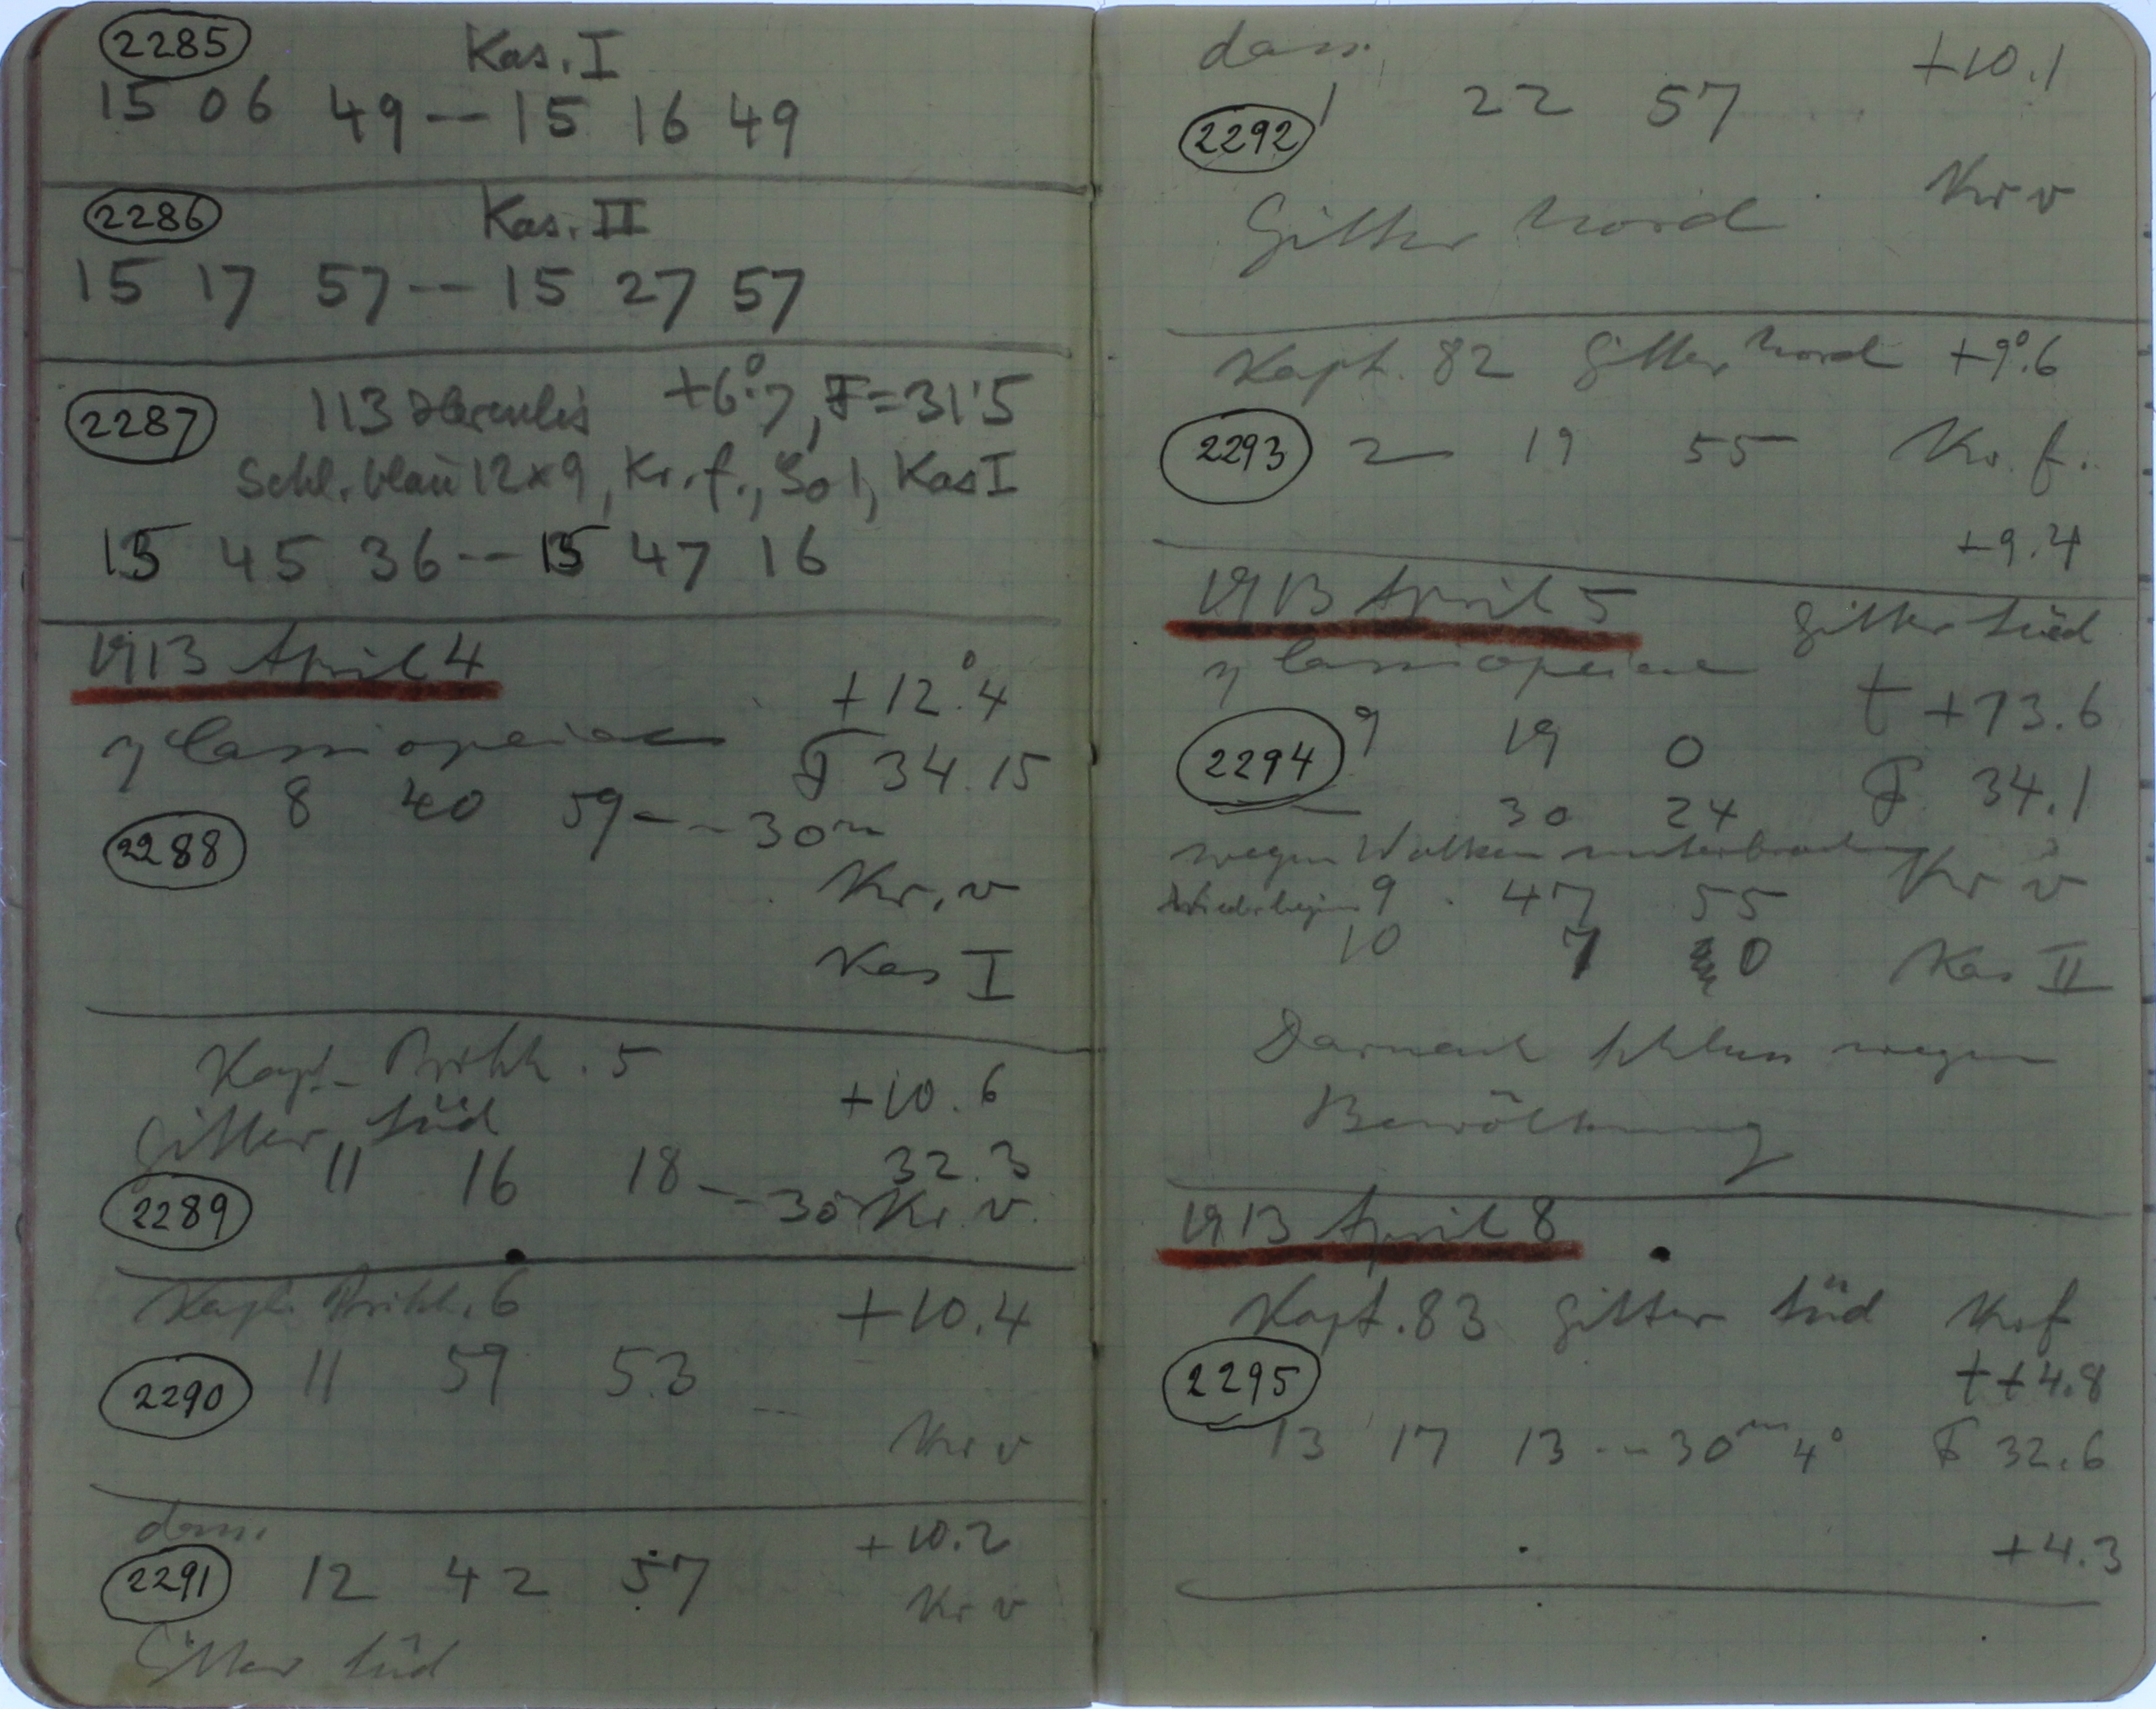 2285 Kas. I
15 06 49 -- 15 16 49
2286 Kas. II
15 17 57 -- 15 27 57
2287 113 Herculis +6°.7, F=31.5
Schl. blau 12x9, Kr. f., So 1, Kas I
15 45 36 -- 15 47 16
1913 April 4
+12°.4
η Cassiopeiae F 34.15
2288 8 40 59 -- 30m
Kr. v
Kas I
Kapt. 5
+10.6
Gitter Süd
32.3
2289 11 16 18 -- 30m Kr. v.
Kapt. 6 +10.4
2290 11 59 53
Kr v
dass.
+10.2
2291 12 42 57
Kr v
Gitter Süd
dass. +10.1
2292 1 22 57
Kr v
Gitter Nord
Kapt. 82 Gitter Nord +9°.6
2293 2 19 55 Kr. f.
+9.4
1913 April 5 Gitter Süd
η Cassiopeiae
t +13.6
2294 9 19 0
F 34.1
— 30 24
wegen Wolken unterbrochen Kr v
Wiederbeginn 9 47 55
10 7 0 Kas II
Darnach Schluss wegen
Bewölkung
1913 April 8
Kapt. 83 Gitter Süd Kr f
2295 t +4.8
13 17 13 -- 30m 4s F 32.6
+4.3